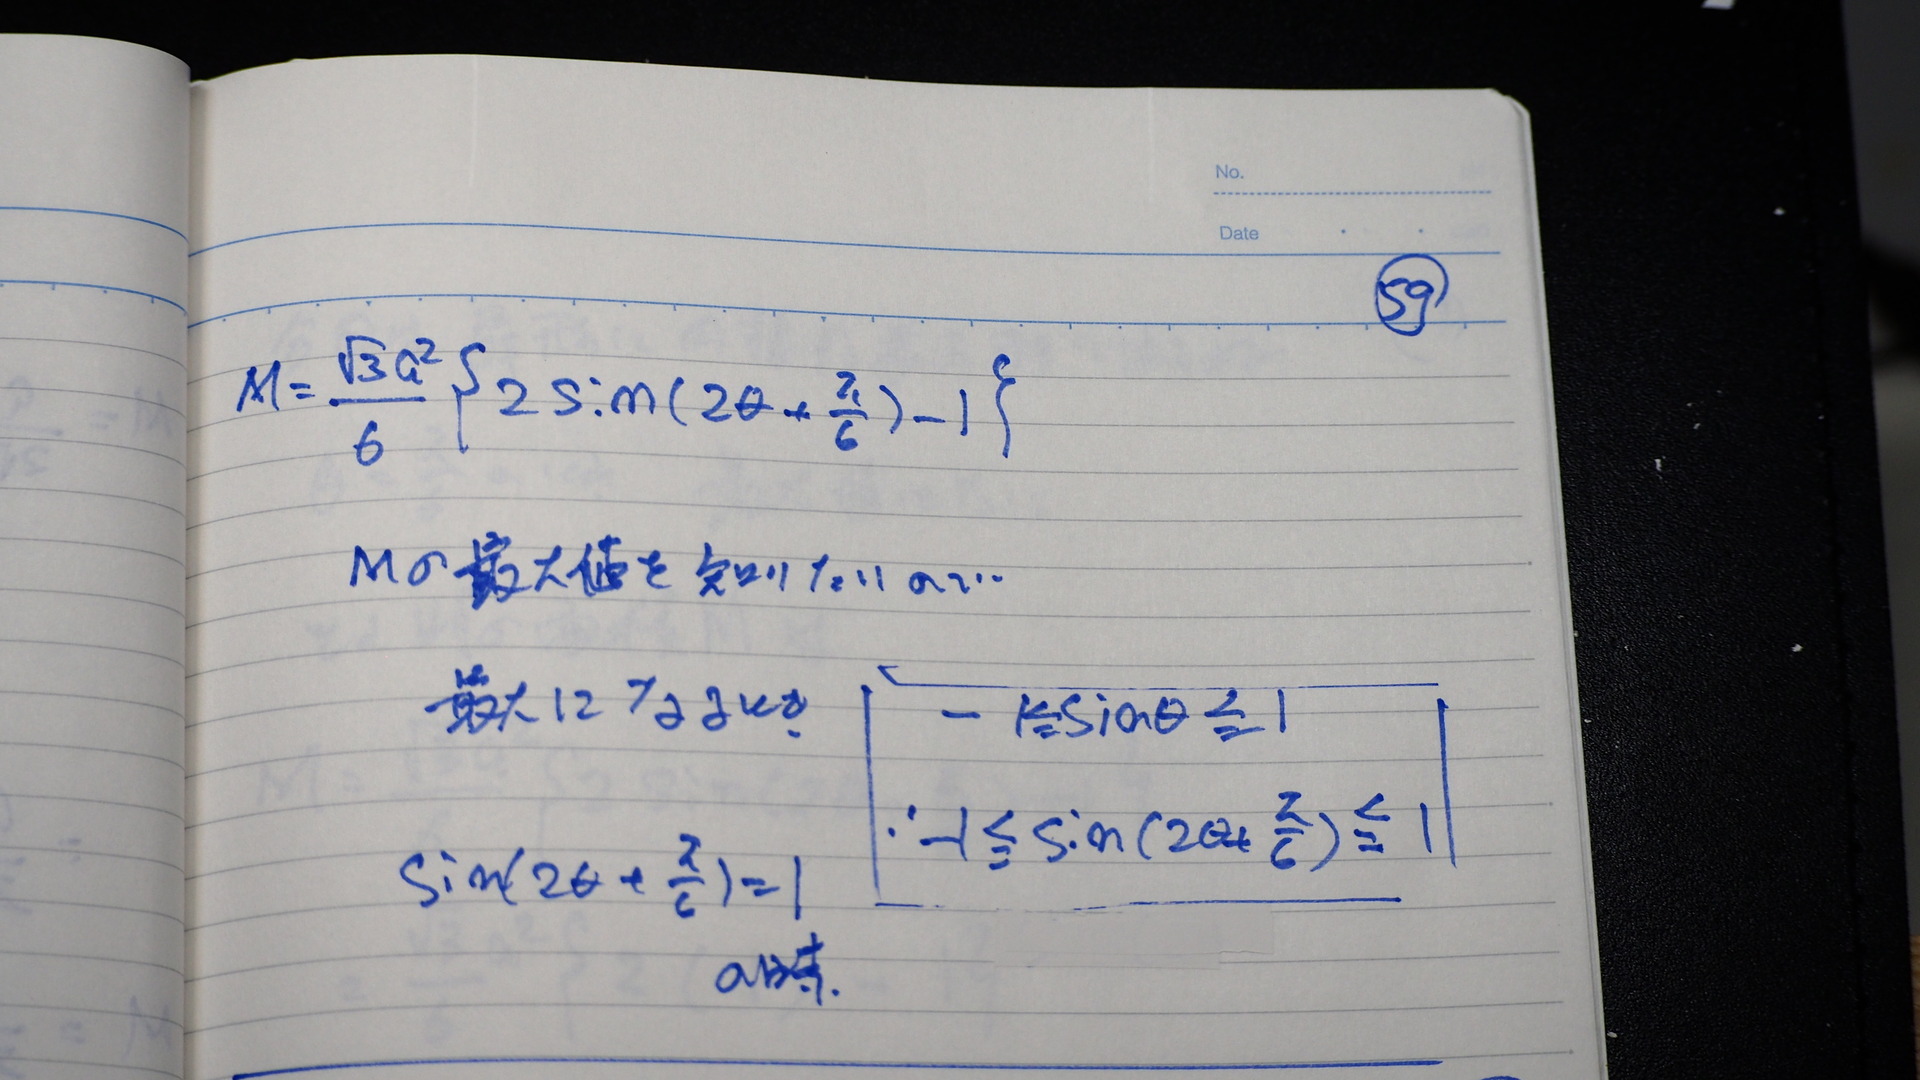 No.
Date
59
M = √3a²/6 { 2 sin(2θ + π/6) - 1 }
Mの最大値を知りたいので…
最大になるのは
- 1 ≦ sinθ ≦ 1
∴ -1 ≦ sin(2θ + π/6) ≦ 1
sin(2θ + π/6) = 1
の時.